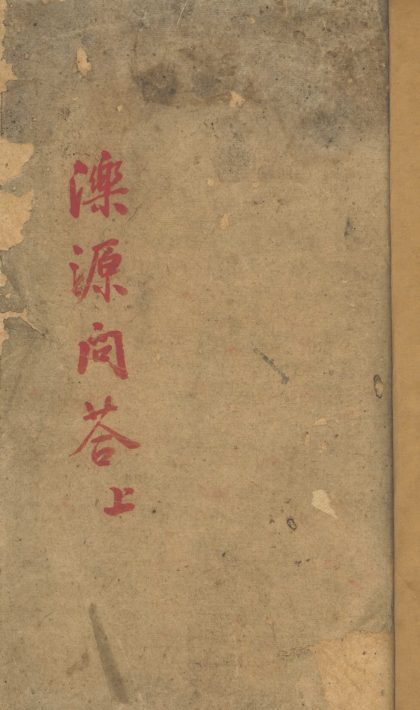 濼源問荅上